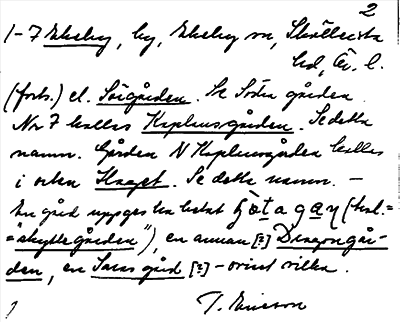 2
1-7 Ekeby, by, Ekeby sn, Skölleersta
hd, Ör. l.
(forts.) el. Sörgården. Se Södra gården
Nr 7 kallas Kaplansgården. Se detta
namn. Gården N Kaplansgården kallas
i orten Knapet. Se detta namn. –
En gård uppges ha hetat
= "skyttegården"), en annan [?] Dragongår-
den, en Saras gård [?] – ovisst vilka.
T. Ericson